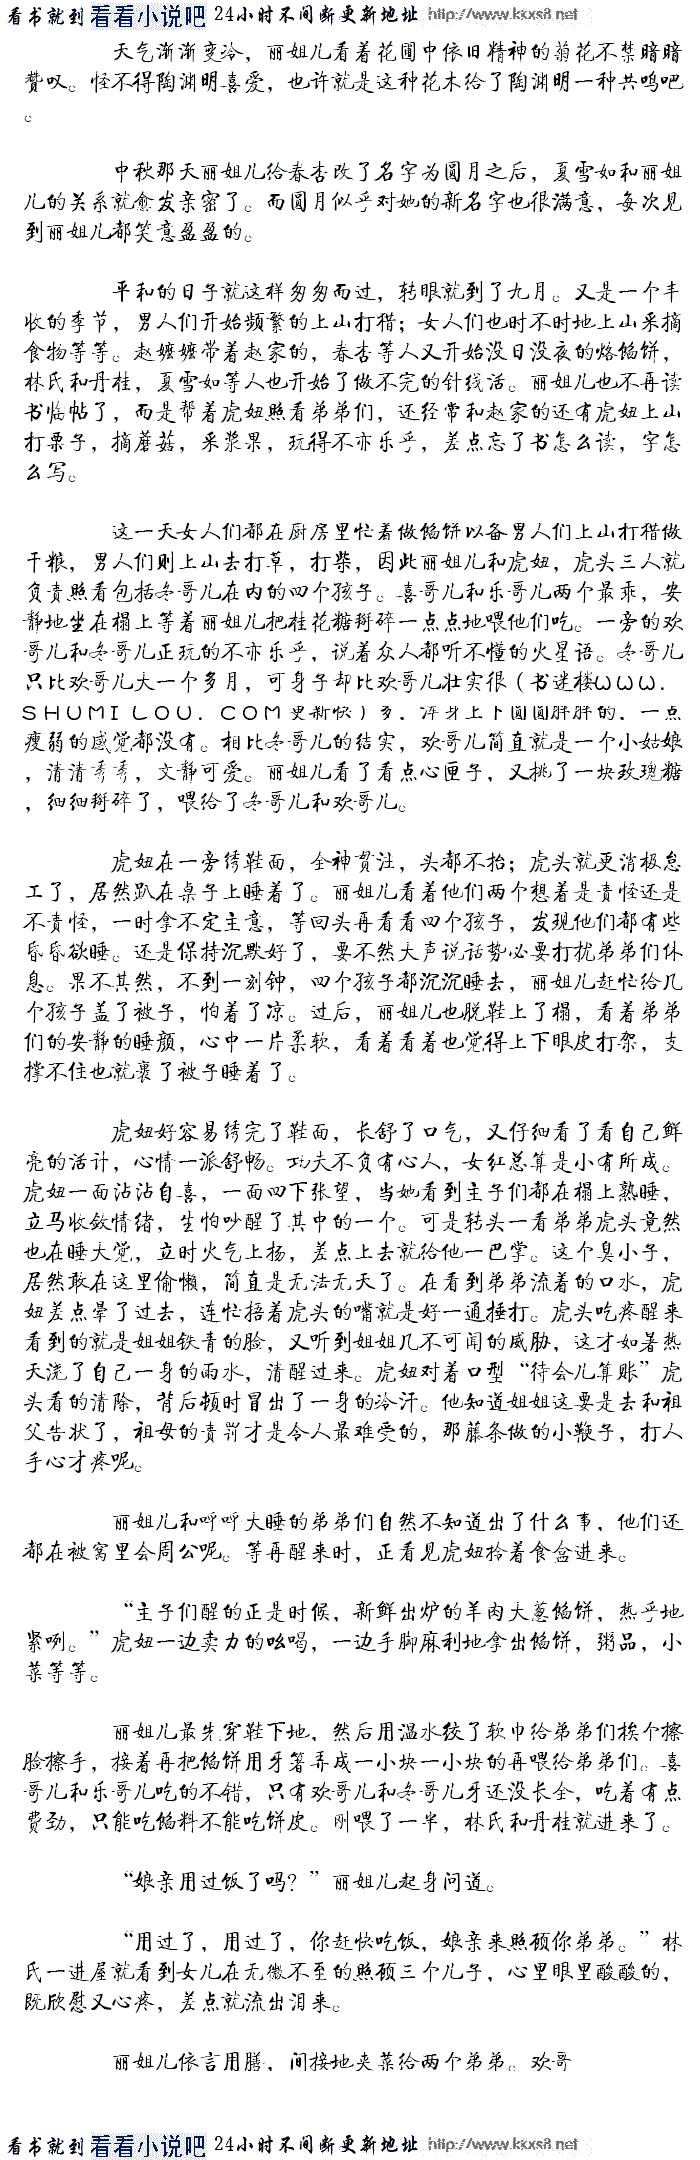 看书就到 看看小说吧 24小时不间断更新地址 http://www.kkxs8.net
天气渐渐变冷，丽姐儿看着花圃中依旧精神的菊花不禁暗暗
赞叹。怪不得陶渊明喜爱，也许就是这种花木给了陶渊明一种共鸣吧
。
中秋那天丽姐儿给春杏改了名字为圆月之后，夏雪如和丽姐
儿的关系就愈发亲密了。而圆月似乎对她的新名字也很满意，每次见
到丽姐儿都笑意盈盈的。
平和的日子就这样匆匆而过，转眼就到了九月。又是一个丰
收的季节，男人们开始频繁的上山打猎；女人们也时不时地上山采摘
食物等等。赵嬷嬷带着赵家的，春杏等人又开始没日没夜的烙馅饼，
林氏和丹桂，夏雪如等人也开始了做不完的针线活。丽姐儿也不再读
书临帖了，而是帮着虎妞照看弟弟们，还经常和赵家的还有虎妞上山
打栗子，摘蘑菇，采浆果，玩得不亦乐乎，差点忘了书怎么读，字怎
么写。
这一天女人们都在厨房里忙着做馅饼以备男人们上山打猎做
干粮，男人们则上山去打草，打柴，因此丽姐儿和虎妞，虎头三人就
负责照看包括冬哥儿在内的四个孩子。喜哥儿和乐哥儿两个最乖，安
静地坐在榻上等着丽姐儿把桂花糖掰碎一点点地喂他们吃。一旁的欢
哥儿和冬哥儿正玩的不亦乐乎，说着众人都听不懂的火星语。冬哥儿
只比欢哥儿大一个多月，可身子却比欢哥儿壮实很（书迷楼ωωω．
ＳＨＵＭＩＬＯＵ．ＣＯＭ更新快）多，浑身上下圆圆胖胖的，一点
瘦弱的感觉都没有。相比冬哥儿的结实，欢哥儿简直就是一个小姑娘
，清清秀秀，文静可爱。丽姐儿看了看点心匣子，又挑了一块玫瑰糖
，细细掰碎了，喂给了冬哥儿和欢哥儿。
虎妞在一旁绣鞋面，全神贯注，头都不抬；虎头就更消极怠
工了，居然趴在桌子上睡着了。丽姐儿看着他们两个想着是责怪还是
不责怪，一时拿不定主意，等回头再看看四个孩子，发现他们都有些
昏昏欲睡。还是保持沉默好了，要不然大声说话势必要打扰弟弟们休
息。果不其然，不到一刻钟，四个孩子都沉沉睡去，丽姐儿赶忙给几
个孩子盖了被子，怕着了凉。过后，丽姐儿也脱鞋上了榻，看着弟弟
们的安静的睡颜，心中一片柔软，看着看着也觉得上下眼皮打架，支
撑不住也就裹了被子睡着了。
虎妞好容易绣完了鞋面，长舒了口气，又仔细看了看自己鲜
亮的活计，心情一派舒畅。功夫不负有心人，女红总算是小有所成。
虎妞一面沾沾自喜，一面四下张望，当她看到主子们都在榻上熟睡，
立马收敛情绪，生怕吵醒了其中的一个。可是转头一看弟弟虎头竟然
也在睡大觉，立时火气上扬，差点上去就给他一巴掌。这个臭小子，
居然敢在这里偷懒，简直是无法无天了。在看到弟弟流着的口水，虎
妞差点晕了过去，连忙捂着虎头的嘴就是好一通捶打。虎头吃疼醒来
看到的就是姐姐铁青的脸，又听到姐姐几不可闻的威胁，这才如暑热
天浇了自己一身的雨水，清醒过来。虎妞对着口型“待会儿算账”虎
头看的清除，背后顿时冒出了一身的冷汗。他知道姐姐这要是去和祖
父告状了，祖母的责罚才是令人最难受的，那藤条做的小鞭子，打人
手心才疼呢。
丽姐儿和呼呼大睡的弟弟们自然不知道出了什么事，他们还
都在被窝里会周公呢。等再醒来时，正看见虎妞拎着食盒进来。
“主子们醒的正是时候，新鲜出炉的羊肉大葱馅饼，热乎地
紧咧。”虎妞一边卖力的吆喝，一边手脚麻利地拿出馅饼，粥品，小
菜等等。
丽姐儿最先穿鞋下地，然后用温水绞了软巾给弟弟们挨个擦
脸擦手，接着再把馅饼用牙箸弄成一小块一小块的再喂给弟弟们。喜
哥儿和乐哥儿吃的不错，只有欢哥儿和冬哥儿牙还没长全，吃着有点
费劲，只能吃馅料不能吃饼皮。刚喂了一半，林氏和丹桂就进来了。
“娘亲用过饭了吗？”丽姐儿起身问道。
“用过了，用过了，你赶快吃饭，娘亲来照顾你弟弟。”林
氏一进屋就看到女儿在无微不至的照顾三个儿子，心里眼里酸酸的，
既欣慰又心疼，差点就流出泪来。
丽姐儿依言用膳，间接地夹菜给两个弟弟。欢哥
看书就到 看看小说吧 24小时不间断更新地址 http://www.kkxs8.net